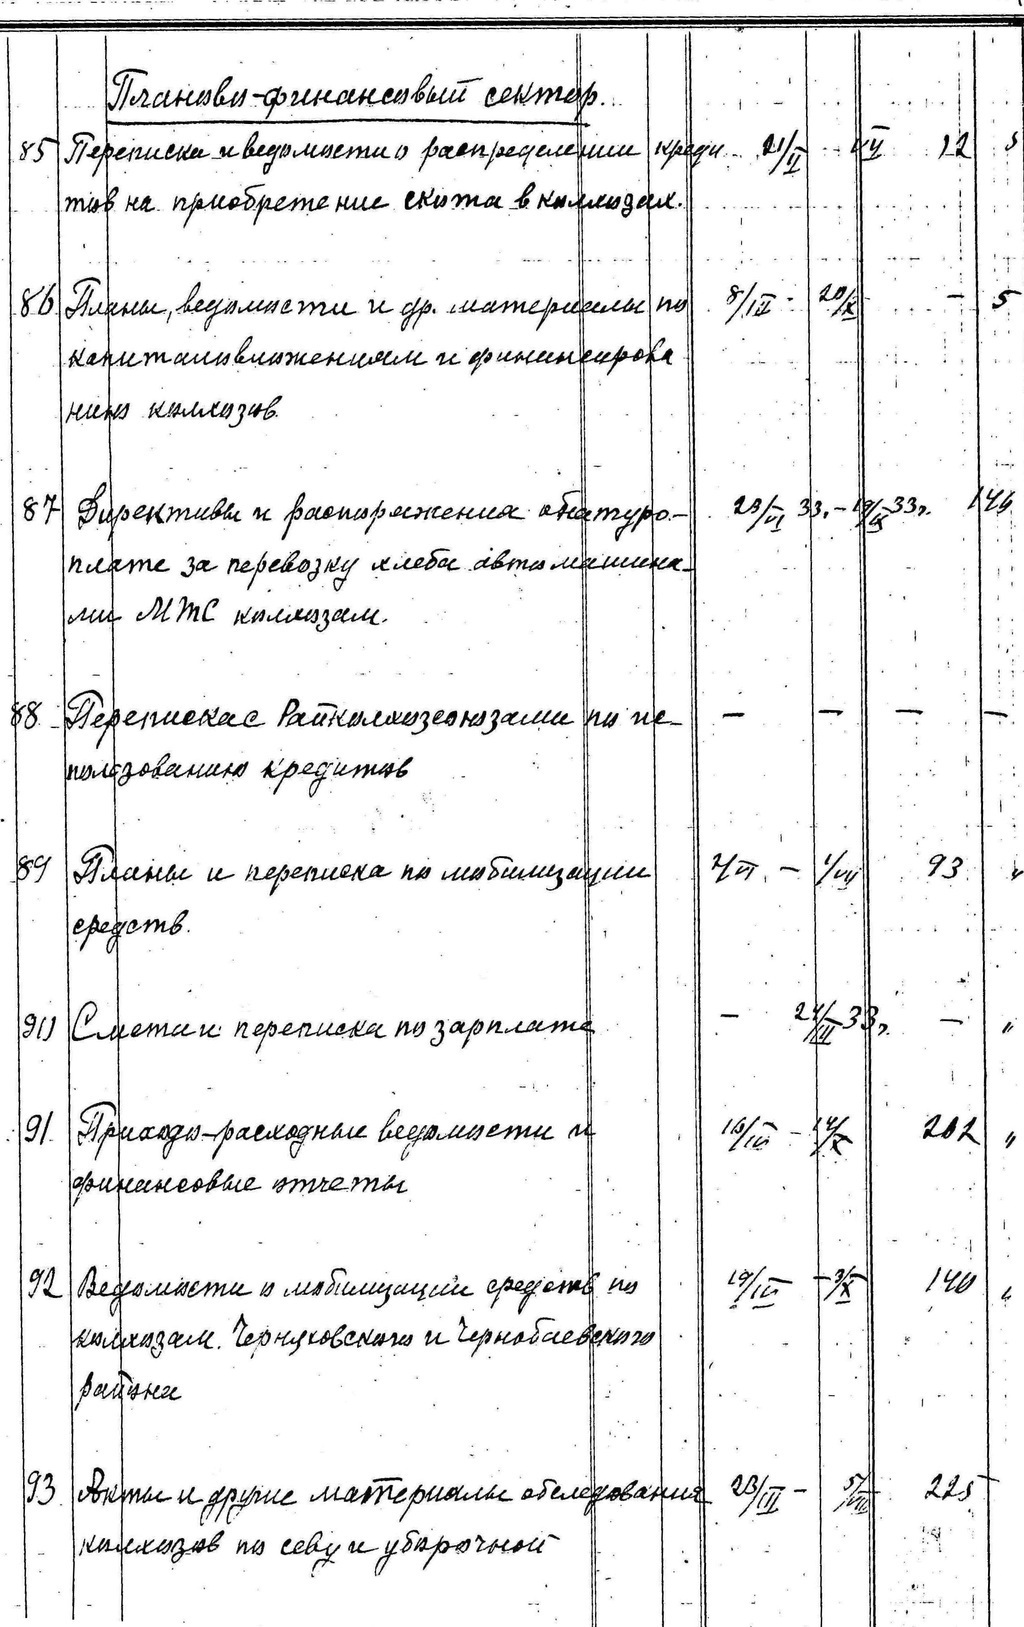 Планово-финансовый сектор.
85 Переписка и ведомости о распределении креди- 21/II 12 5
тов на приобретение скота в колхозах.
86 Планы, ведомости и др. материалы по 8/III - 20/X - 5
капиталовложениям и финансирова
нию колхозов.
87 Директивы и распоряжения о натуро- 23/VI 33. - 19/IX 33г. 146
плате за перевозку хлеба автомашина-
ми МТС колхозам.
88 Переписка с Райколхозсоюзами по ис- — — — —
пользованию кредитов
89 Планы и переписка по мобилизации - 1/VII 93 "
средств.
90 Смета и переписка по зарплате — 33г. — "
91. Приходо-расходные ведомости и 16/IV - 14/X 202 "
финансовые отчеты
92 Ведомости о мобилизации средств по 19/IV - 3/X 140 "
колхозам. Черняховского и Чернобаевского
района
93 Акты и другие материалы обследования 23/III - 225
колхозов по севу и уборочной